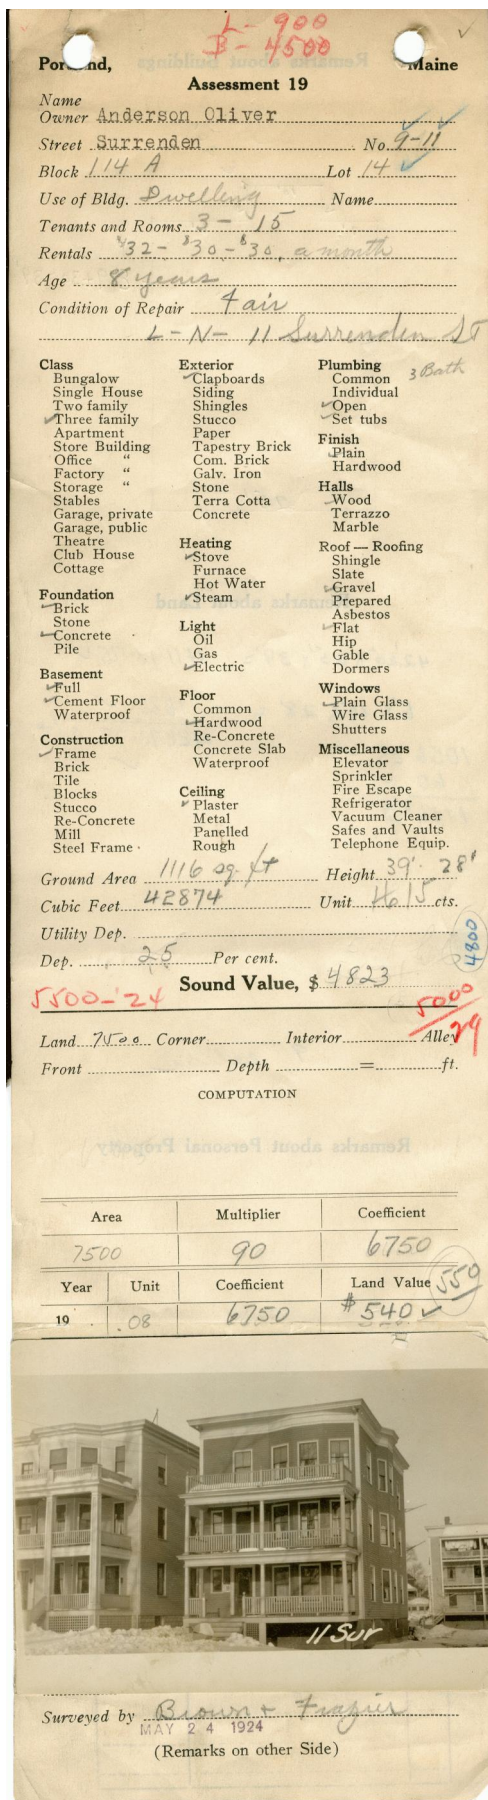 L - 900
B - 4500
Portland, Maine
Assessment 19
Name
Owner Anderson Oliver
Street Surrenden No. 9-11
Block 114 A Lot 14
Use of Bldg. Dwelling Name
Tenants and Rooms 3 - 15
Rentals $32 - $30 - $30, a month
Age 8 years
Condition of Repair Fair
L - N - 11 Surrenden ST
Class
Bungalow
Single House
Two family
Three family
Apartment
Store Building
Office "
Factory "
Storage "
Stables
Garage, private
Garage, public
Theatre
Club House
Cottage
Foundation
Brick
Stone
Concrete
Pile
Basement
Full
Cement Floor
Waterproof
Construction
Frame
Brick
Tile
Blocks
Stucco
Re-Concrete
Mill
Steel Frame
Exterior
Clapboards
Siding
Shingles
Stucco
Paper
Tapestry Brick
Com. Brick
Galv. Iron
Stone
Terra Cotta
Concrete
Heating
Stove
Furnace
Hot Water
Steam
Light
Oil
Gas
Electric
Floor
Common
Hardwood
Re-Concrete
Concrete Slab
Waterproof
Ceiling
Plaster
Metal
Panelled
Rough
Plumbing
Common 3 Bath
Individual
Open
Set tubs
Finish
Plain
Hardwood
Halls
Wood
Terrazzo
Marble
Roof — Roofing
Shingle
Slate
Gravel
Prepared
Asbestos
Flat
Hip
Gable
Dormers
Windows
Plain Glass
Wire Glass
Shutters
Miscellaneous
Elevator
Sprinkler
Fire Escape
Refrigerator
Vacuum Cleaner
Safes and Vaults
Telephone Equip.
Ground Area 1116 sq. ft Height 39' - 28'
Cubic Feet 42874 Unit cts.
Utility Dep.
Dep. 25 Per cent. 4800
Sound Value, $ 4823
5500-'24 5000/29
Land 7500 Corner Interior Alley
Front Depth = ft.
COMPUTATION
Area Multiplier Coefficient
7500 90 6750
Year Unit Coefficient Land Value 550
19 .08 6750 $ 540
11 Sur
Surveyed by Brown + Frazier
MAY 24 1924
(Remarks on other Side)